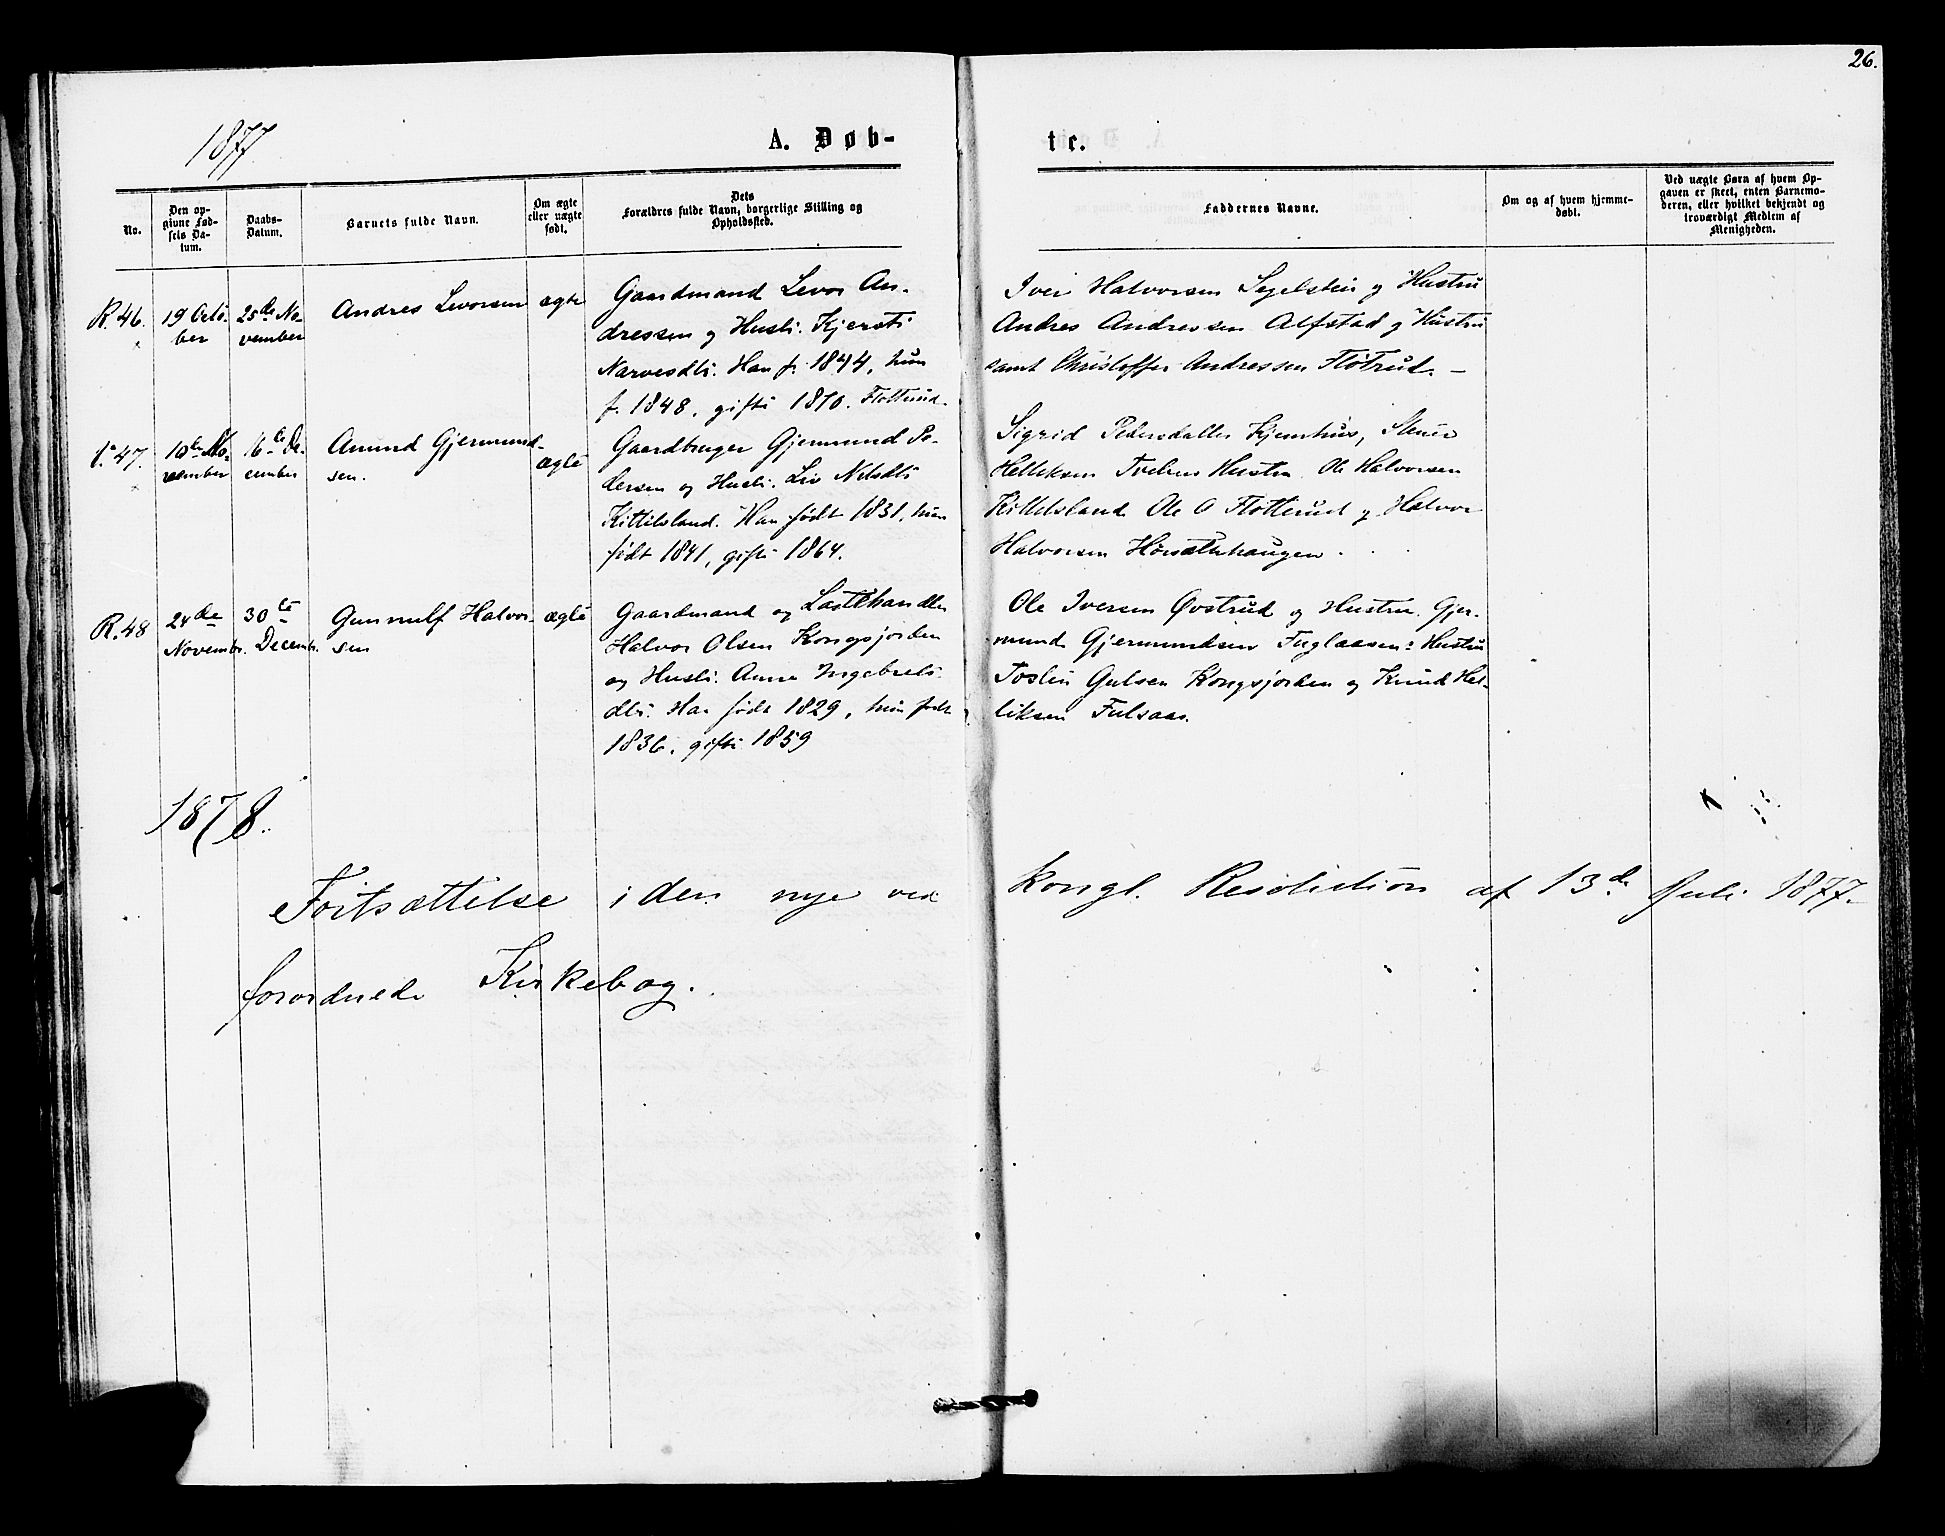 26.
1877
A. Døb-
te.
No.
Den op-
givne Fød-
sels Da-
tum.
Daabs-
Datum.
Barnets fulde Navn.
Om ægte
eller uægte
født.
Dets
Forældres fulde Navn, borgerlige Stilling og
Opholdssted.
Faddernes Navne.
Om og af hvem hjemme-
døbt.
Ved uægte Børn af hvem Op-
gaven er skeet, enten Barnemo-
deren, eller hvilket bekjendt og
troværdigt Medlem af
Menigheden.
R. 46.
19 Octo-
ber
25de No-
vember
Andres Levorsen
ægte
Gaardmand Levor An-
dressen og Hustr. Kjersti
Narvesdtr. Han f. 1844, hun
f. 1848, gifte 1870. Flottrud.
Iver Halvorsen Segelstein og Hustru
Andres Andressen Alfstad og Hustru
samt Christoffer Andressen Flotrud. —
47.
10de No-
vember
16de De-
cember
Amund Gjermund-
sen.
ægte
Gaardbruger Gjermund Pe-
dersen og Hustr. Liv Nilsdtr
Kittilsland. Han født 1831, hun
født 1841, gifte 1864.
Sigrid Pedersdatter Kjemhus,
Helliksen Hustru Ole Halvorsen
Kittilsland Ole A Flotterud og Halvor
Halvorsen
R. 48
24de
Novembr.
30te
Decembr.
Gunnulf Halvor-
sen
ægte
Gaardmand og Lasthandler
Halvor Olsen Kongsjorden
og Hustr. Anne Ingebrets-
dtr. Han født 1829, hun født
1836, gifte 1859
Ole Iversen Øvstrud og Hustru. Gjer-
mund Gjermundsen Fuglaasen og Hustru
Tostin Gulsen Kongsjorden og Knud Hel-
liksen Fulsaas.
1878.
Fortsættelse i den nye ved kongl. Resolution af 13de Juli 1877
forordnede Kirkebog.